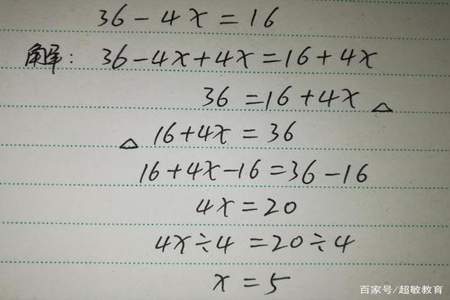 36-4x=16
解: 36-4x+4x=16+4x
36=16+4x △
△ 16+4x=36
16+4x-16=36-16
4x=20
4x÷4=20÷4
x=5
百家号/超敏教育